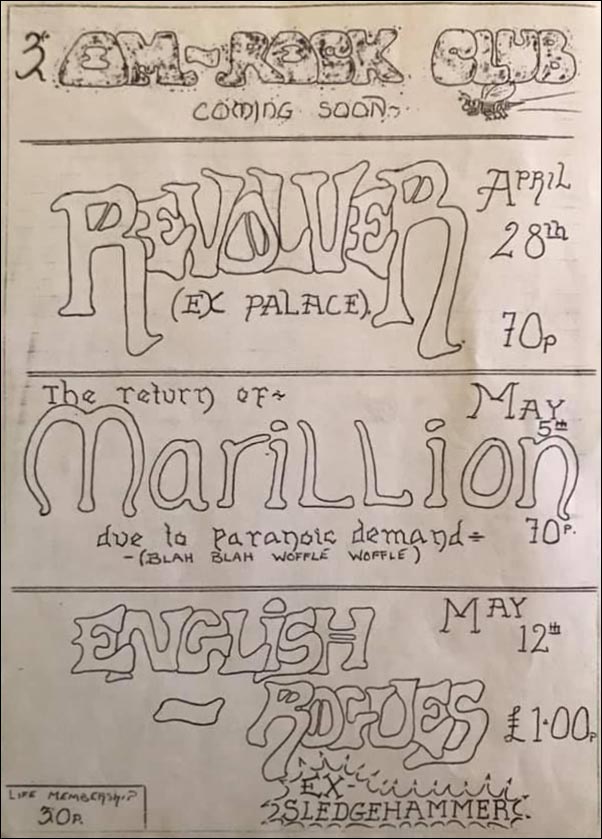 3 AM.-ROCK CLUB
COMING SOON~
REVOLVER
(EX PALACE).
APRIL
28th
70p
The return of~
MAY
5th
Marillion
due to paranoic demand~
70p.
-(BLAH BLAH WOFFLE WOFFLE)
ENGLISH
MAY
12th
- ROGUES
£1·00p
EX-
SLEDGEHAMMER
LIFE MEMBERSHIP
30p.